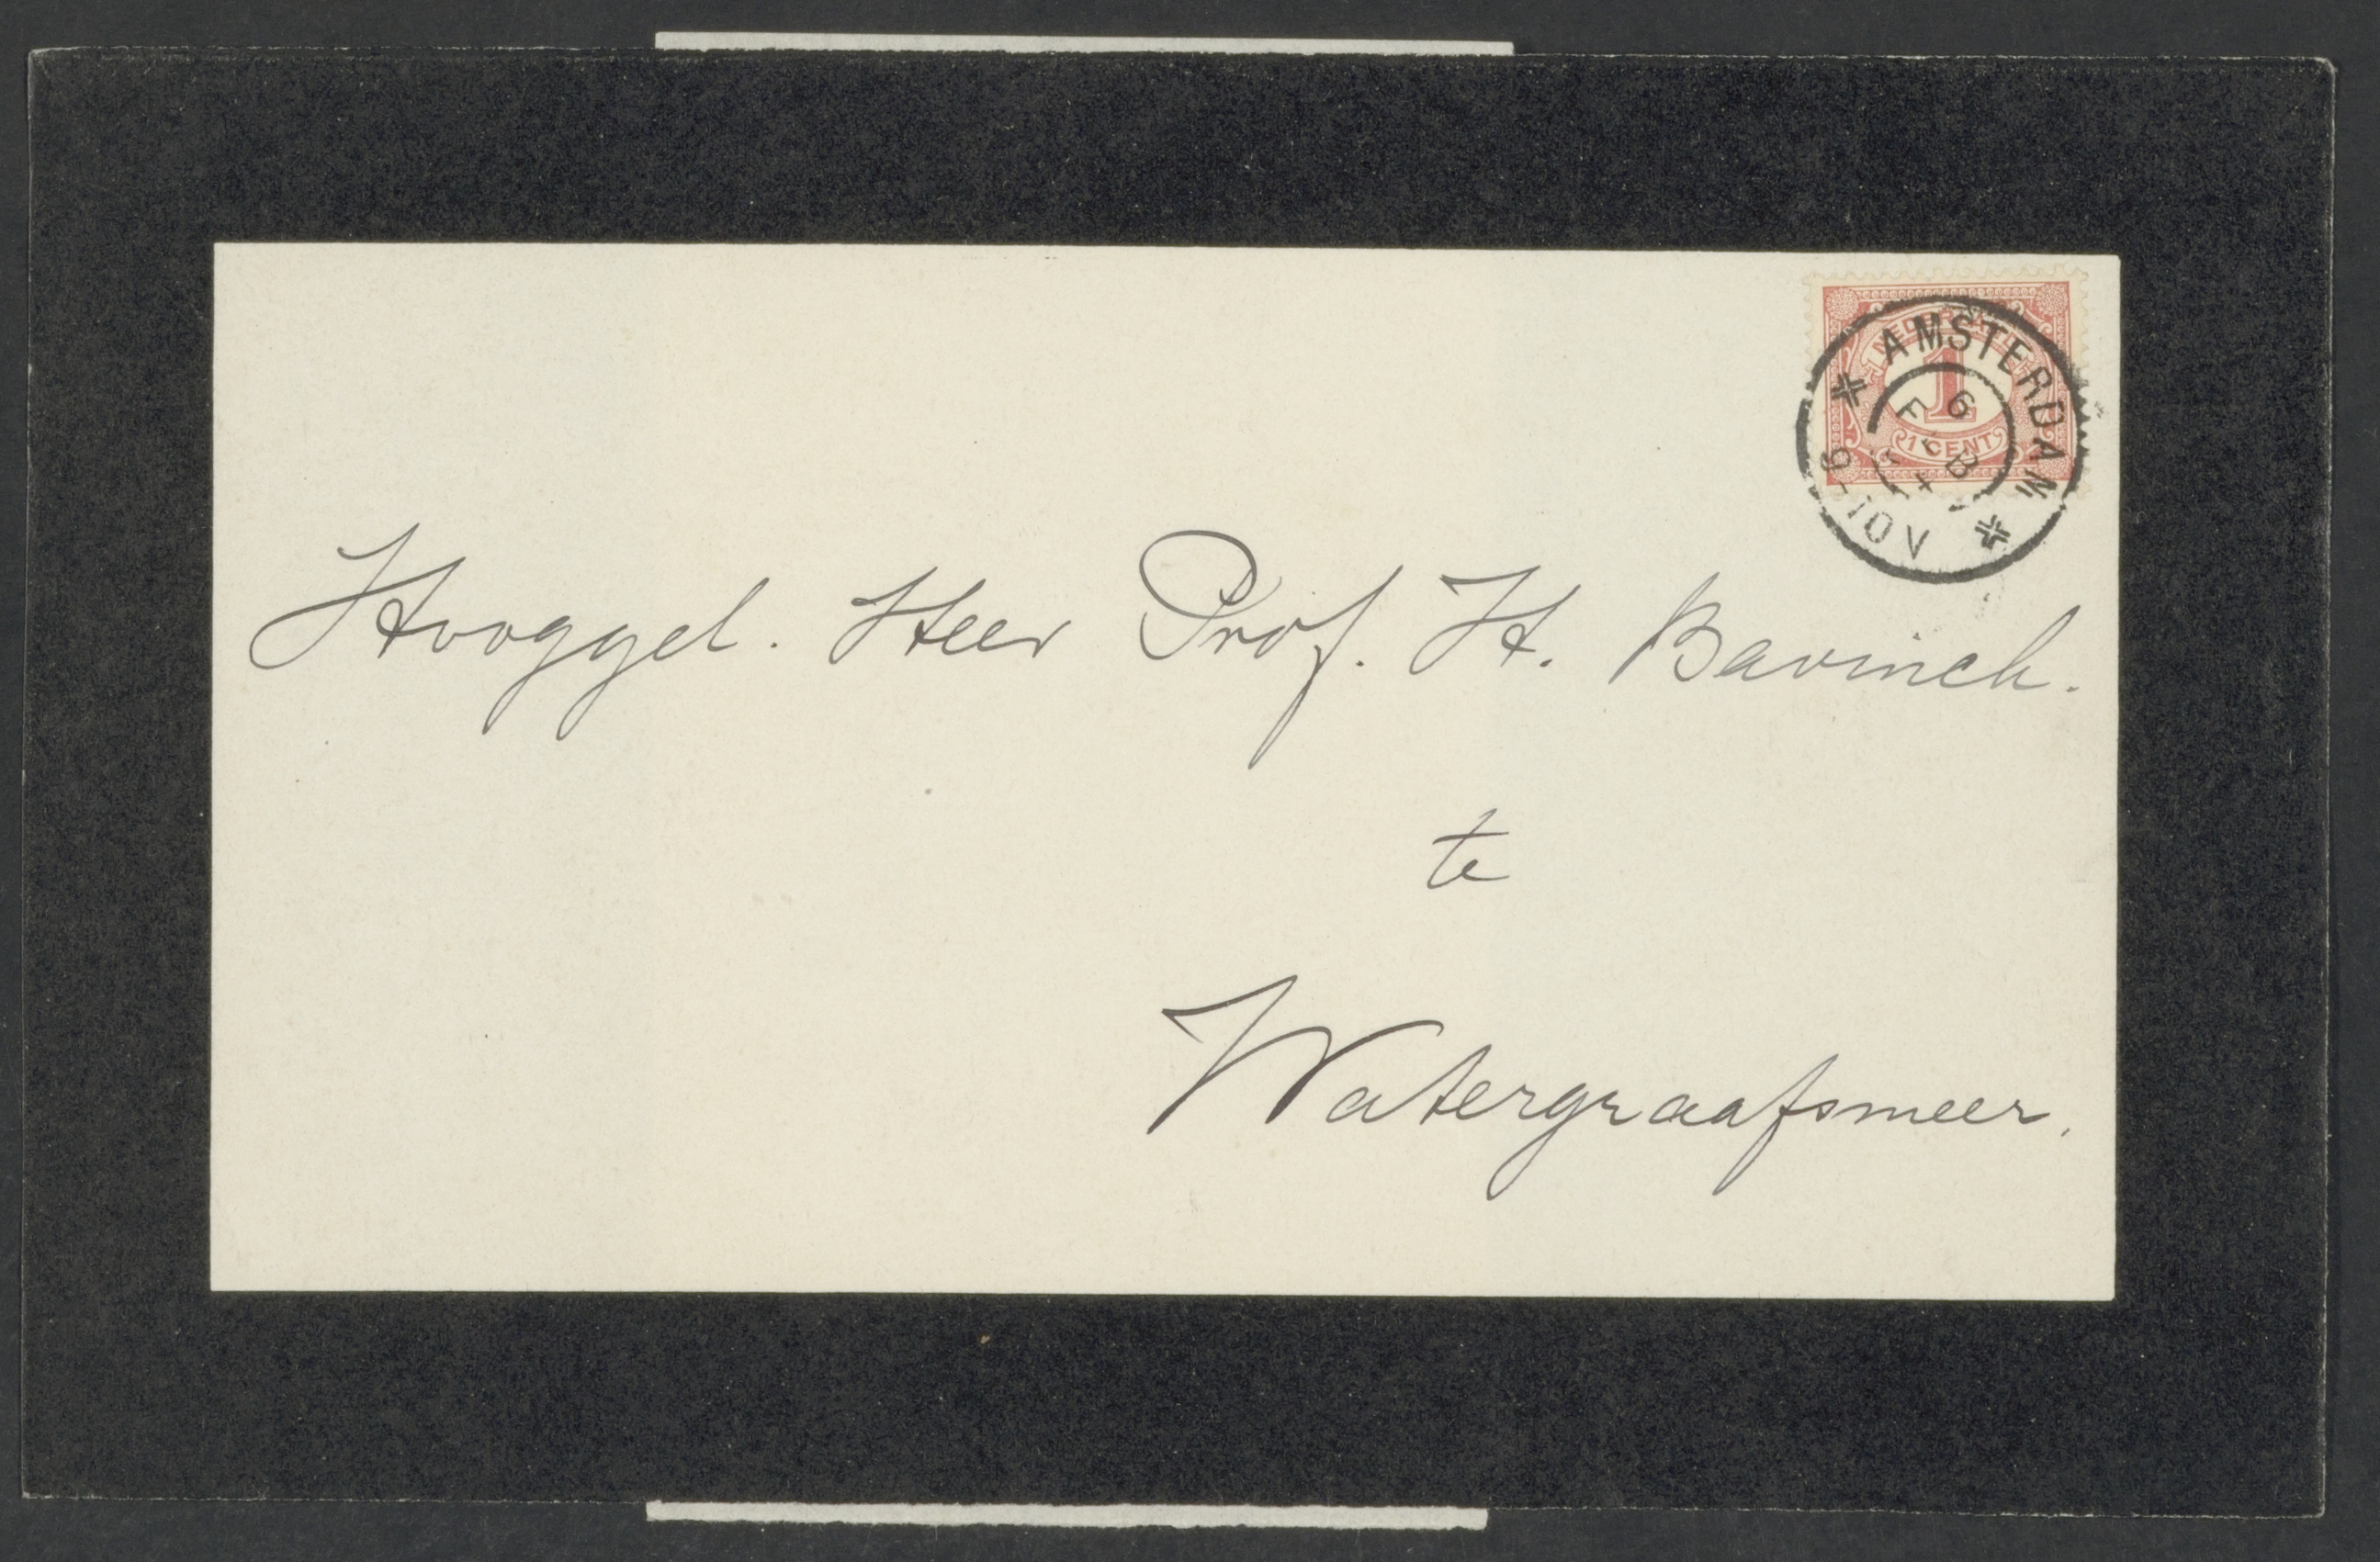 NEDERLAND
1
1 CENT
AMSTERDAM
6 FEB
9-10V
Hooggel. Heer Prof. H. Bavinck.
te
Watergraafsmeer.